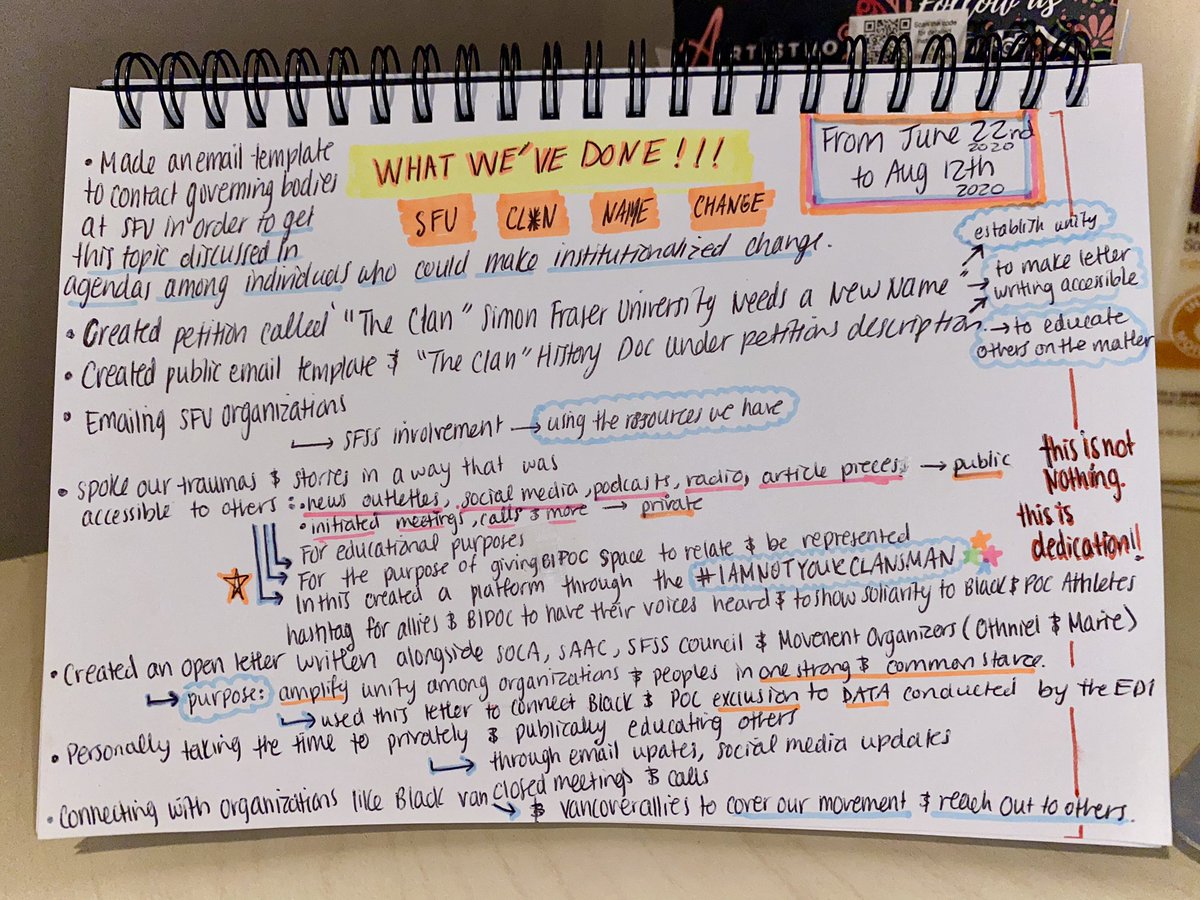 Follow us
Scan the code
WHAT WE'VE DONE!!!
SFU CL*N NAME CHANGE
From June 22nd
2020
to Aug 12th
2020
• Made an email template
to contact governing bodies
at SFU in order to get
this topic discussed in
agendas among individuals who could make institutionalized change.
• Created petition called "The Clan" Simon Fraser University Needs a New Name"
• Created public email template & "The Clan" History Doc under petitions description.
establish unity
→ to make letter
writing accessible
→ to educate
others on the matter
• Emailing SFU organizations
→ SFSS involvement → using the resources we have
• Spoke our traumas & stories in a way that was
accessible to others : • news outletes, social media, podcasts, radio, article pieces → public
• initiated meetings, calls & more → private
For educational purposes
For the purpose of giving BIPOC space to relate & be represented
In this created a platform through the #IAMNOTYOURCLANSMAN
hashtag for allies & BIPOC to have their voices heard & to show soliarity to Black & POC Athletes
this is not
Nothing.
this is
dedication!!
• Created an open letter written alongside SOCA, SAAC, SFSS council & Movement Organizers (Othniel & Marie)
→ purpose: amplify unity among organizations & peoples in one strong & common stance.
→ used this letter to connect Black & POC exclusion to DATA conducted by the EDI
• Personally taking the time to privately & publically educating others
→ through email upates, social media updates
closed meetings & calls
• Connecting with organizations like Black van
→ & vancoverallies to cover our movement & reach out to others.